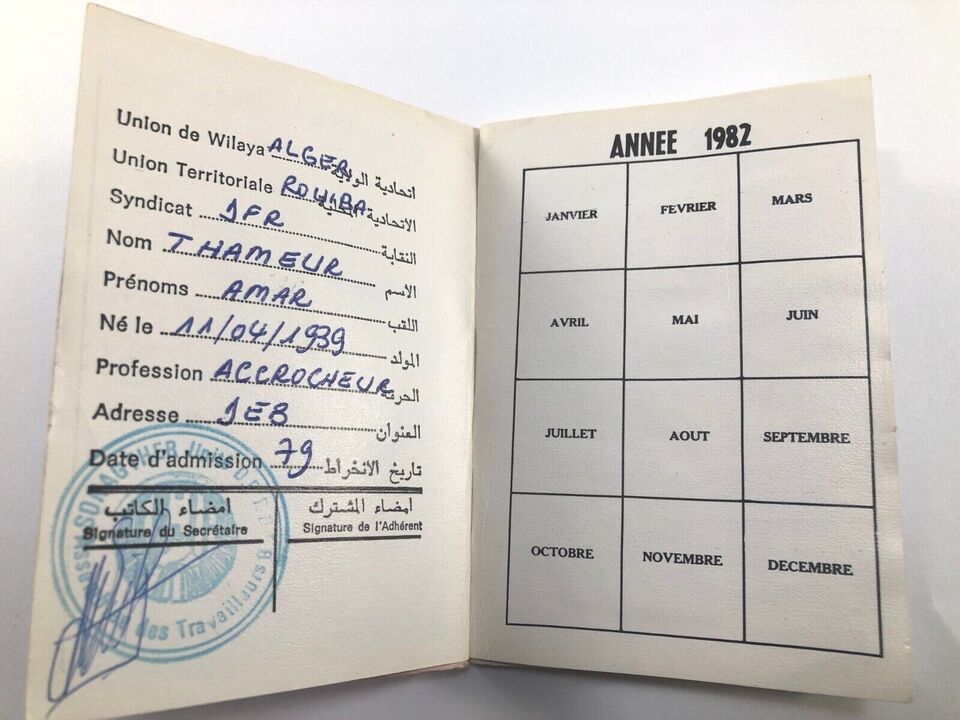 Union de Wilaya ALGER اتحادية الولاية
Union Territoriale ROUIBA الاتحادية المحلية
Syndicat JFR النقابة
Nom THAMEUR الاسم
Prénoms AMAR اللقب
Né le 11/04/1939 المولد
Profession ACCROCHEUR الحرفة
Adresse JEB العنوان
Date d'admission 79 تاريخ الانخراط
امضاء الكاتب
Signature du Secrétaire
امضاء المشترك
Signature de l'Adhérent
des Travailleurs
ANNEE 1982
JANVIER FEVRIER MARS
AVRIL MAI JUIN
JUILLET AOUT SEPTEMBRE
OCTOBRE NOVEMBRE DECEMBRE